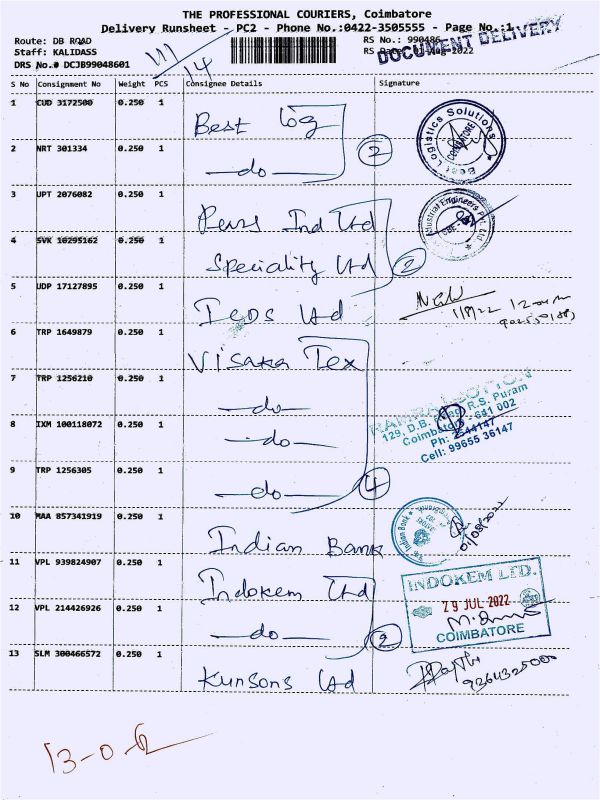 THE PROFESSIONAL COURIERS, Coimbatore
Delivery Runsheet - PC2 - Phone No.:0422-3505555 - Page No.:1
Route: DB ROAD
RS No.: 990486
Staff: KALIDASS
RS -2022
DOCUMENT DELIVERY
DRS No.# DCJB99048601
14
S No Consignment No Weight PCS Consignee Details Signature
1 CUD 3172500 0.250 1 Best log
Best Logistics Solutions
COIMBATORE
2 NRT 301334 0.250 1 —do— 2
3 UPT 2076082 0.250 1 Ind Ltd
Industrial Engineers Pvt. Ltd
CBE
4 SVK 16295162 0.250 1 Speciality Ltd 2
5 UDP 17127895 0.250 1 Ltd
6 TRP 1649879 0.250 1 Visaka Tex
7 TRP 1256210 0.250 1 —do—
129, D.B. Road, R.S. Puram
Coimbatore - 641 002
Ph: 2544147
Cell: 99655 36147
8 IXM 100118072 0.250 1 —do—
9 TRP 1256305 0.250 1 —do— 4
10 MAA 857341919 0.250 1 Indian Bank
Indian Bank
11 VPL 939824907 0.250 1 Indokem Ltd
INDOKEM LTD.
29 JUL 2022
COIMBATORE
12 VPL 214426926 0.250 1 —do— 2
13 SLM 300466572 0.250 1 Kunsons Ltd
9364325000